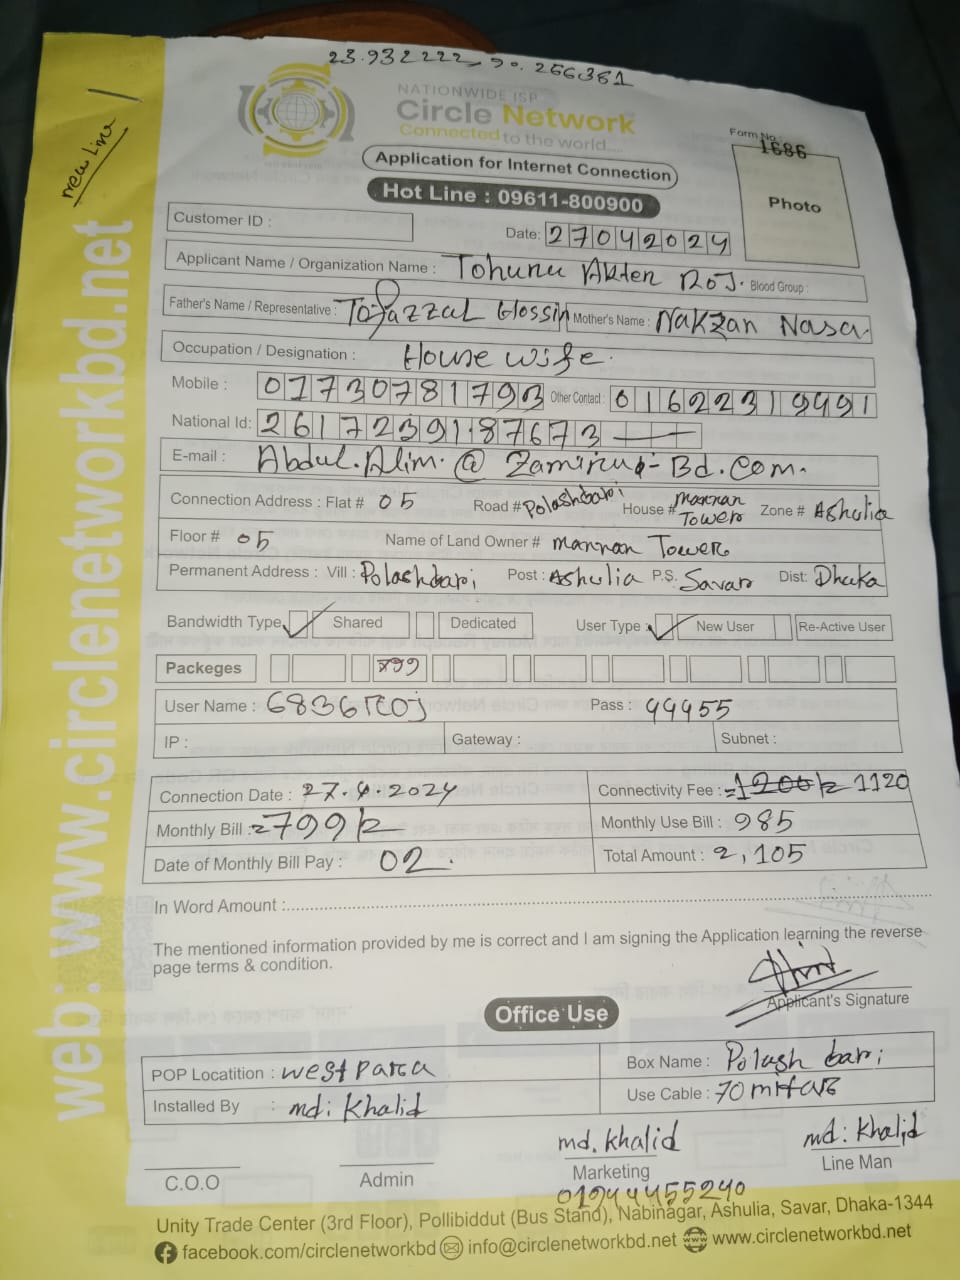 23.932222, 90.266381
NATIONWIDE ISP
Circle Network
Connected to the world....
New Line
Form No :
1686
Application for Internet Connection
Photo
Hot Line : 09611-800900
Customer ID :
Date: 27042024
Applicant Name / Organization Name : Tohunu Akter ROJ. Blood Group :
Father's Name / Representative : Tofazzal Hossin Mother's Name : Nakzan Nasa
Occupation / Designation : House wife.
Mobile : 01730781793 Other Contact : 01622319991
National Id: 2617239187673
E-mail : Abdul.Alim.@
Connection Address : Flat # 05 Road # Polashbari House # Mannan Tower Zone # Ashulia
Floor # 05 Name of Land Owner # mannan Tower
Permanent Address : Vill : Polashbari Post : Ashulia P.S. Savar Dist: Dhaka
Bandwidth Type Shared Dedicated User Type : New User Re-Active User
Packeges 799
User Name : 6836roj Pass : 99955
IP : Gateway : Subnet :
Connection Date : 27.4.2024 Connectivity Fee : =1200/= 1120
Monthly Bill : =799/= Monthly Use Bill : 985
Date of Monthly Bill Pay : 02. Total Amount : 2,105
In Word Amount :
The mentioned information provided by me is correct and I am signing the Application learning the reverse
page terms & condition.
Applicant's Signature
Office Use
POP Locatition : west para Box Name : Polash bari
Installed By : md: Khalid Use Cable : 70 mitar
md. khalid md: Khalid
C.O.O Admin Marketing Line Man
01944455240
Unity Trade Center (3rd Floor), Pollibiddut (Bus Stand), Nabinagar, Ashulia, Savar, Dhaka-1344
facebook.com/circlenetworkbd info@circlenetworkbd.net www.circlenetworkbd.net
web: www.circlenetworkbd.net